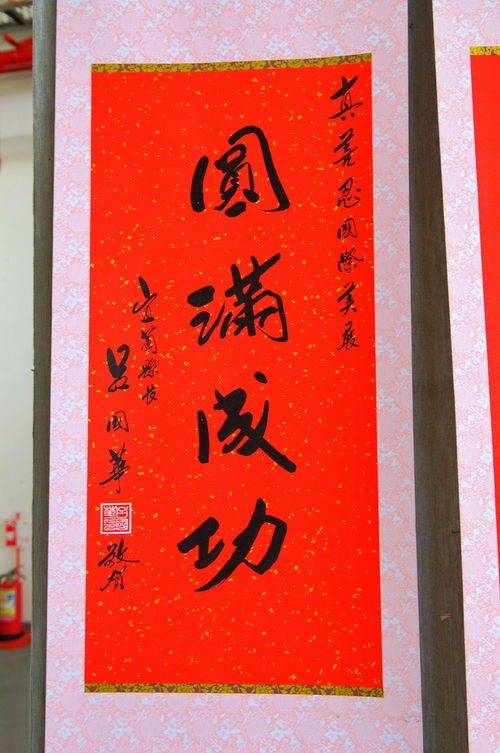 真善忍國際美展
圓滿成功
宜蘭縣長
呂國華
敬賀